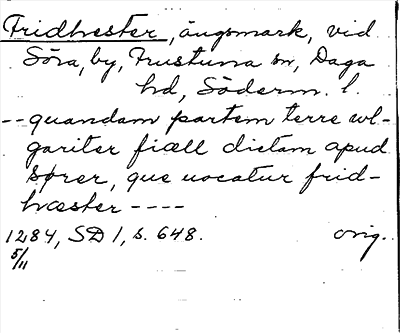 Fridhester, ängsmark, vid
Söra, by, Frustuna sn, Daga
hd, Söderm. l.
-- quandam partem terre wl-
gariter fiæll dictam apud
sører, que uocatur frid-
hæster ----
1284, SD 1, s. 648. orig.
5/11